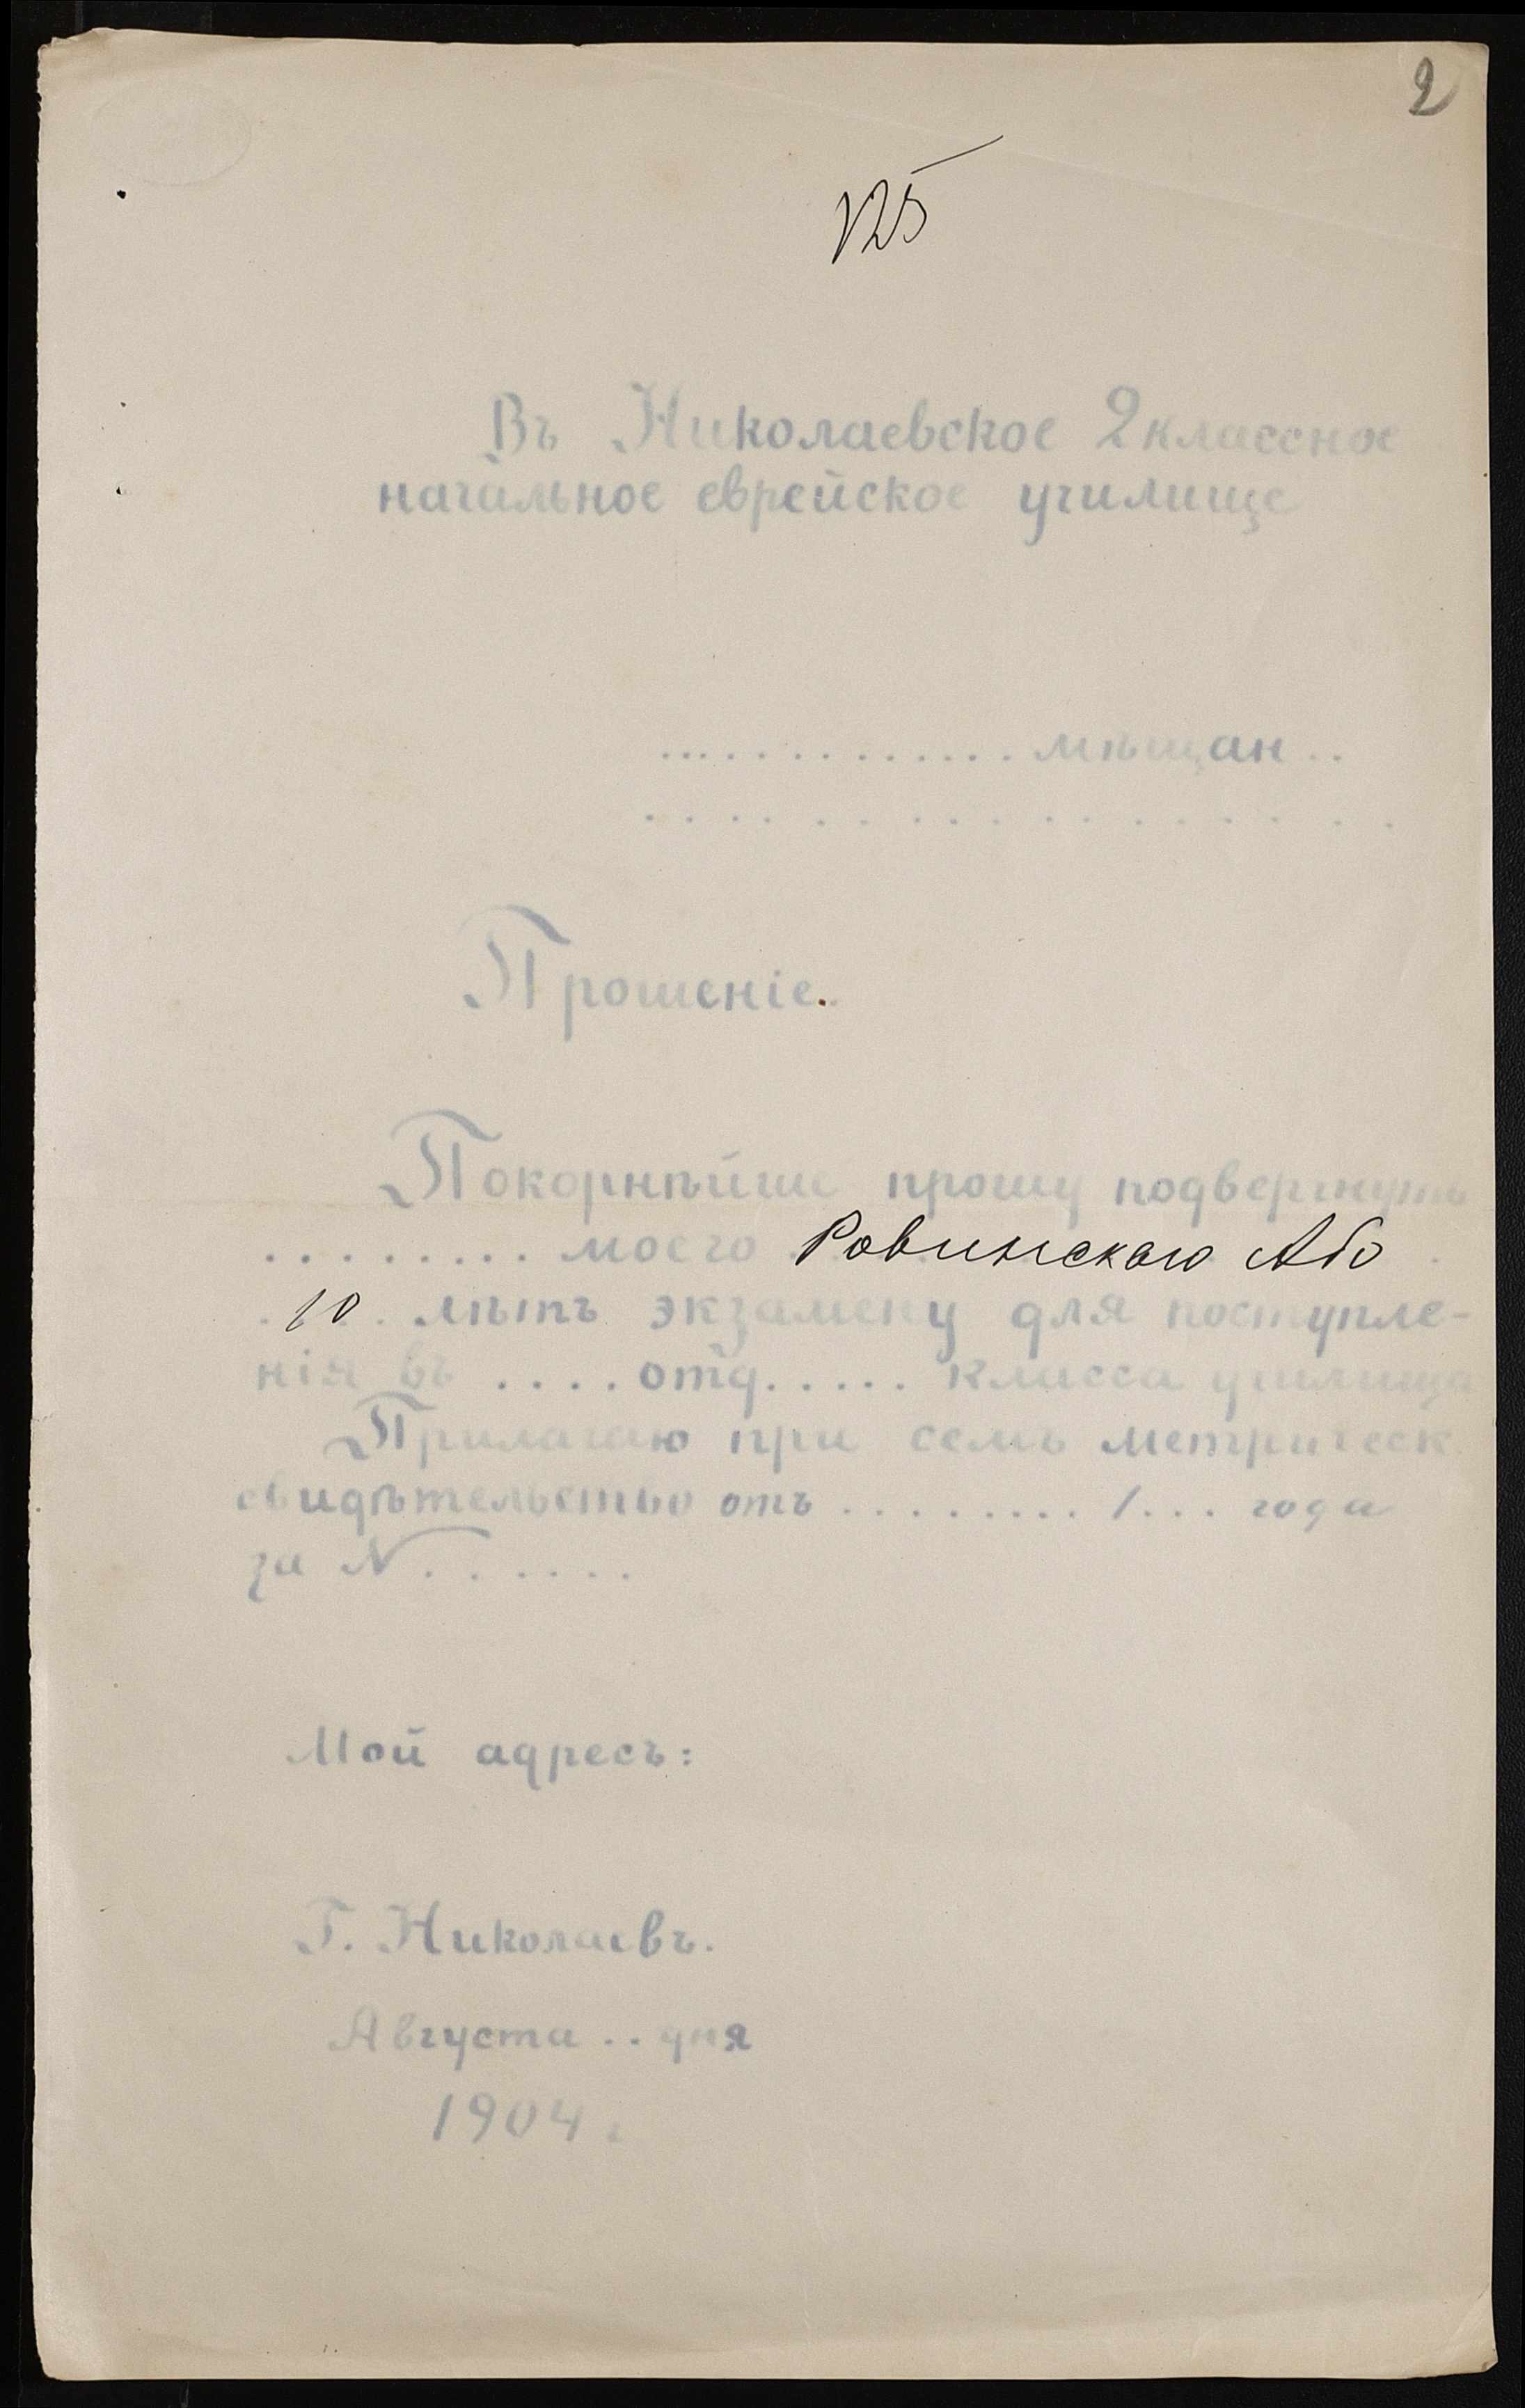 2
125
Въ Николаевское 2 классное
начальное еврейское училище
............. мѣщан..
. . . . . . . . . . . . . . . .
Прошеніе.
Покорнѣйше прошу подвергнуть
......... моего Ровинскаго Або
10 лѣтъ экзамену для поступле-
нія въ .... отд..... класса училища
Прилагаю при семъ метрическ.
свидѣтельство отъ ......... 1... года
за N.......
Мой адресъ:
Г. Николаевъ.
Августа .. дня
1904 г